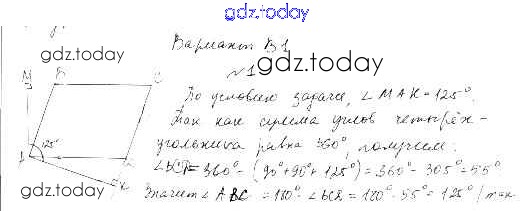 gdz.today
gdz.today
Вариант В1
№1
gdz.today
M B C
По условию задаче, ∠MAK = 125°.
Так как сумма углов четырёх-
125°
угольника равна 360°, получаем:
= 360° - (90° + 90° + 125°) = 360° - 305° = 55°
gdz.today
K
Значит ∠ABC = 180° - = 180° - 55° = 125° /так